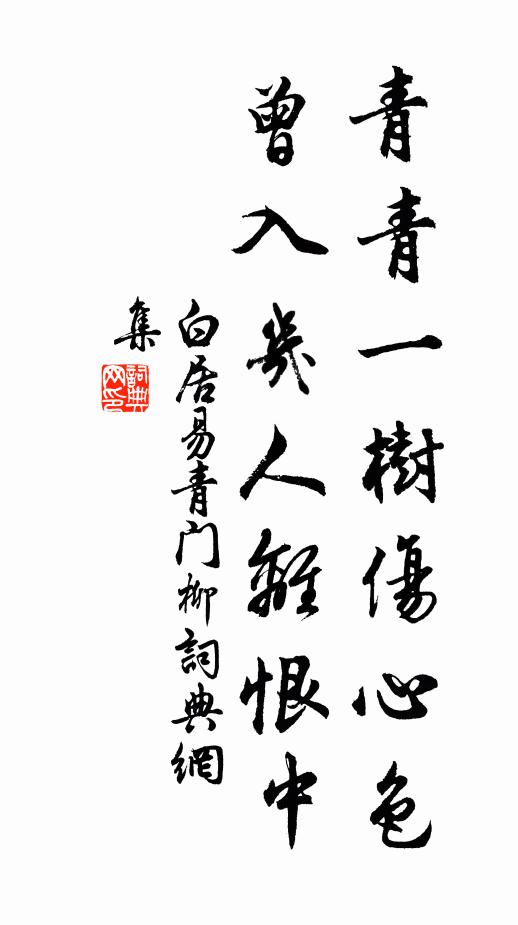 青青一樹傷心色
曾入幾人離恨中
白居易青門柳詞典網
集
詞典
网印